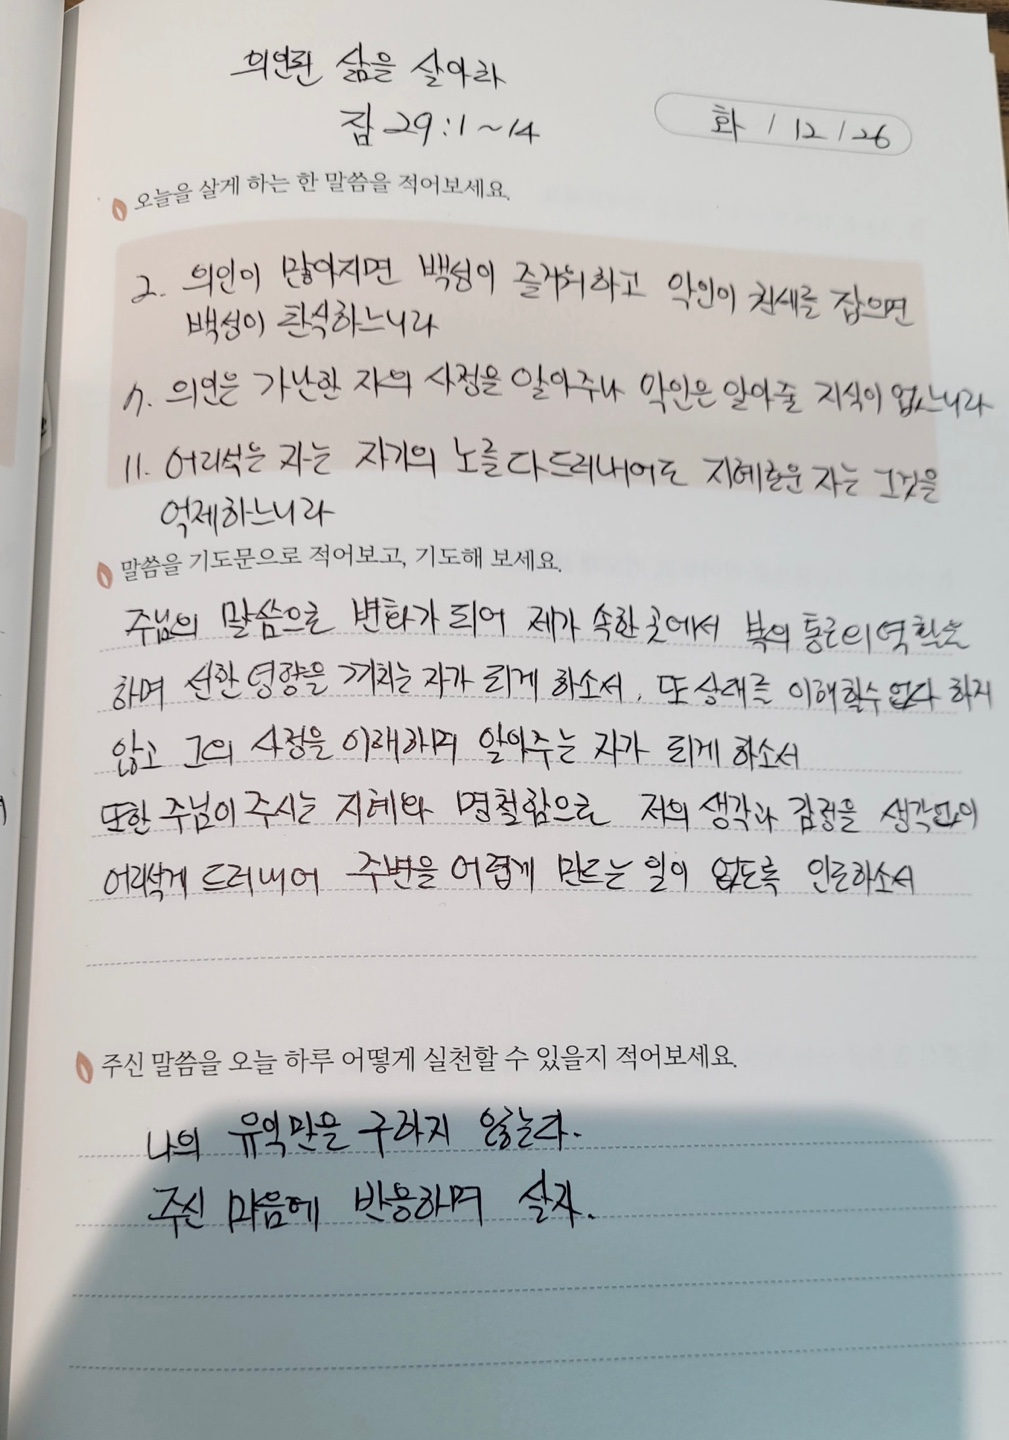 의인된 삶을 살아라
잠 29:1~14
화 / 12 / 26
오늘을 살게 하는 한 말씀을 적어보세요.
2. 의인이 많아지면 백성이 즐거워하고 악인이 권세를 잡으면
백성이 탄식하느니라
7. 의인은 가난한 자의 사정을 알아주나 악인은 알아줄 지식이 없느니라
11. 어리석은 자는 자기의 노를 다 드러내어도 지혜로운 자는 그것을
억제하느니라
말씀을 기도문으로 적어보고, 기도해 보세요.
주님의 말씀으로 변화가 되어 제가 속한 곳에서 복의 통로의 역할을
하며 선한 영향을 끼치는 자가 되게 하소서. 또 상대를 이해할수 없다 하지
않고 그의 사정을 이해하며 알아주는 자가 되게 하소서
또한 주님이 주시는 지혜와 명철함으로 저의 생각과 감정을 생각없이
어리석게 드러내어 주변을 어렵게 만드는 일이 없도록 인도하소서
주신 말씀을 오늘 하루 어떻게 실천할 수 있을지 적어보세요.
나의 유익만을 구하지 않는다.
주신 마음에 반응하며 살자.